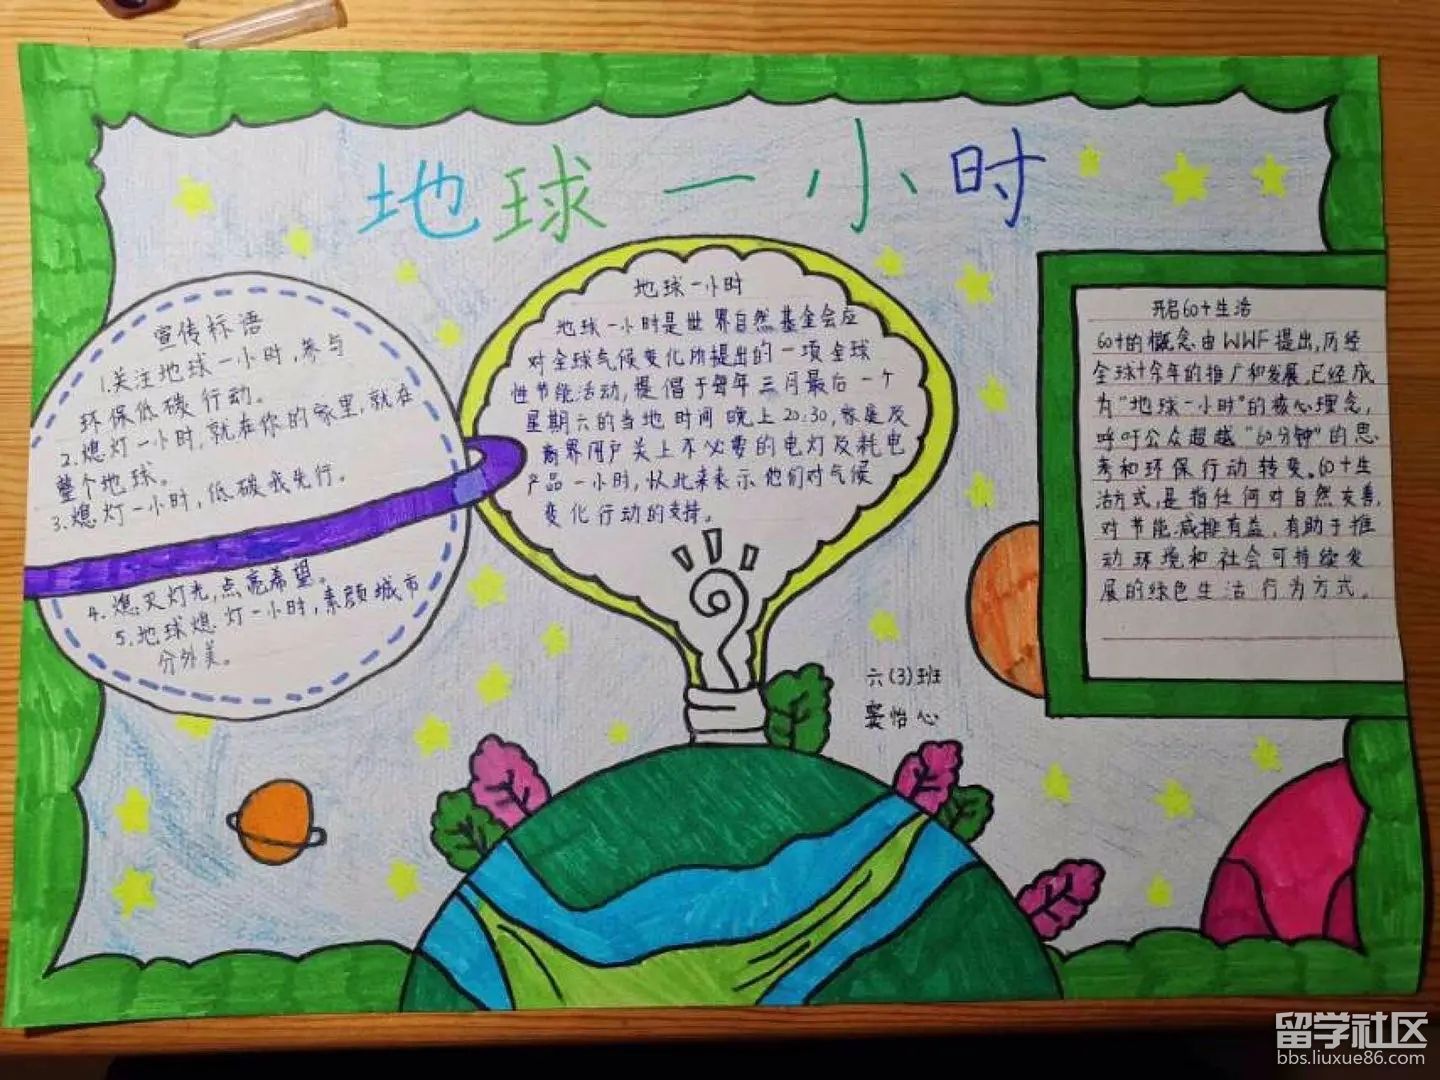 地球一小时
宣传标语
1.关注地球一小时,参与
环保低碳行动。
2.熄灯一小时,就在你的家里,就在
整个地球。
3.熄灯一小时,低碳我先行。
4.熄灭灯光,点亮希望。
5.地球熄灯一小时,素颜城市
分外美。
地球一小时
地球一小时是世界自然基金会应
对全球气候变化所提出的一项全球
性节能活动,提倡于每年三月最后一个
星期六的当地时间晚上20:30,家庭及
商界用户关上不必要的电灯及耗电
产品一小时,以此来表示他们对气候
变化行动的支持。
开启60+生活
60+的概念由WWF提出,历经
全球十余年的推广和发展,已经成
为“地球一小时”的核心理念,
呼吁公众超越“60分钟”的思
考和环保行动转变。60+生
活方式,是指任何对自然友善,
对节能减排有益,有助于推
动环境和社会可持续发
展的绿色生活行为方式。
六(3)班
怡心
留学社区
bbs.liuxue86.com